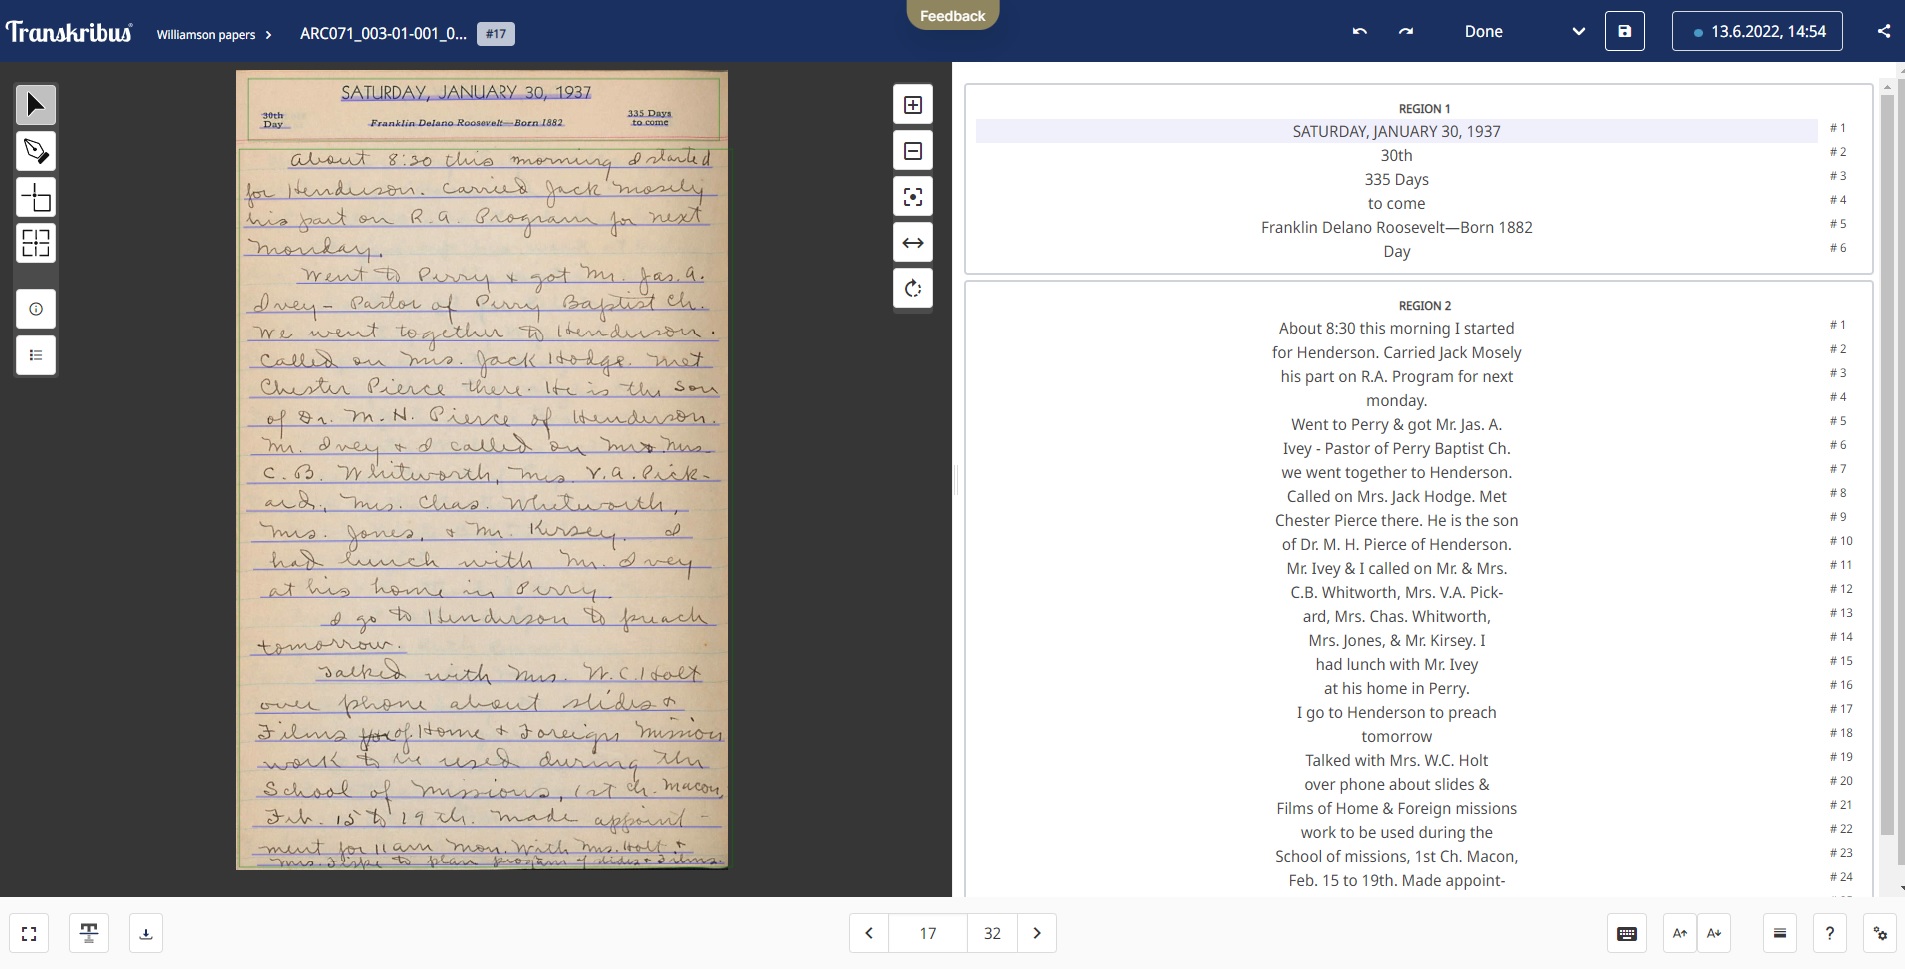 Transkribus
Williamson papers >
ARC071_003-01-001_0...
#17
Feedback
Done
13.6.2022, 14:54
SATURDAY, JANUARY 30, 1937
30th
Day
Franklin Delano Roosevelt—Born 1882
335 Days
to come
About 8:30 this morning I started
for Henderson. Carried Jack Mosely
his part on R.A. Program for next
Monday.
Went to Perry & got Mr. Jas. A.
Ivey - Pastor of Perry Baptist Ch.
We went together to Henderson.
Called on Mrs. Jack Hodge. Met
Chester Pierce there. He is the son
of Dr. M. H. Pierce of Henderson.
Mr. Ivey & I called on Mr & Mrs.
C. B. Whitworth, Mrs. V. A. Pick-
ard, Mrs. Chas. Whitworth,
Mrs. Jones, & Mr. Kirsey. I
had lunch with Mr. Ivey
at his home in Perry.
I go to Henderson to preach
tomorrow.
Talked with Mrs. W. C. Holt
over phone about slides &
Films of Home & Foreign Mission
work to be used during the
School of Missions, 1st Ch. Macon,
Feb. 15 to 19th. Made appoint-
ment for 11 am Mon. With Mrs. Holt &
Mrs. to plan program of slides & Films.
REGION 1
SATURDAY, JANUARY 30, 1937 #1
30th #2
335 Days #3
to come #4
Franklin Delano Roosevelt—Born 1882 #5
Day #6
REGION 2
About 8:30 this morning I started #1
for Henderson. Carried Jack Mosely #2
his part on R.A. Program for next #3
monday. #4
Went to Perry & got Mr. Jas. A. #5
Ivey - Pastor of Perry Baptist Ch. #6
we went together to Henderson. #7
Called on Mrs. Jack Hodge. Met #8
Chester Pierce there. He is the son #9
of Dr. M. H. Pierce of Henderson. #10
Mr. Ivey & I called on Mr. & Mrs. #11
C.B. Whitworth, Mrs. V.A. Pick- #12
ard, Mrs. Chas. Whitworth, #13
Mrs. Jones, & Mr. Kirsey. I #14
had lunch with Mr. Ivey #15
at his home in Perry. #16
I go to Henderson to preach #17
tomorrow #18
Talked with Mrs. W.C. Holt #19
over phone about slides & #20
Films of Home & Foreign missions #21
work to be used during the #22
School of missions, 1st Ch. Macon, #23
Feb. 15 to 19th. Made appoint- #24
17
32
A
A
?